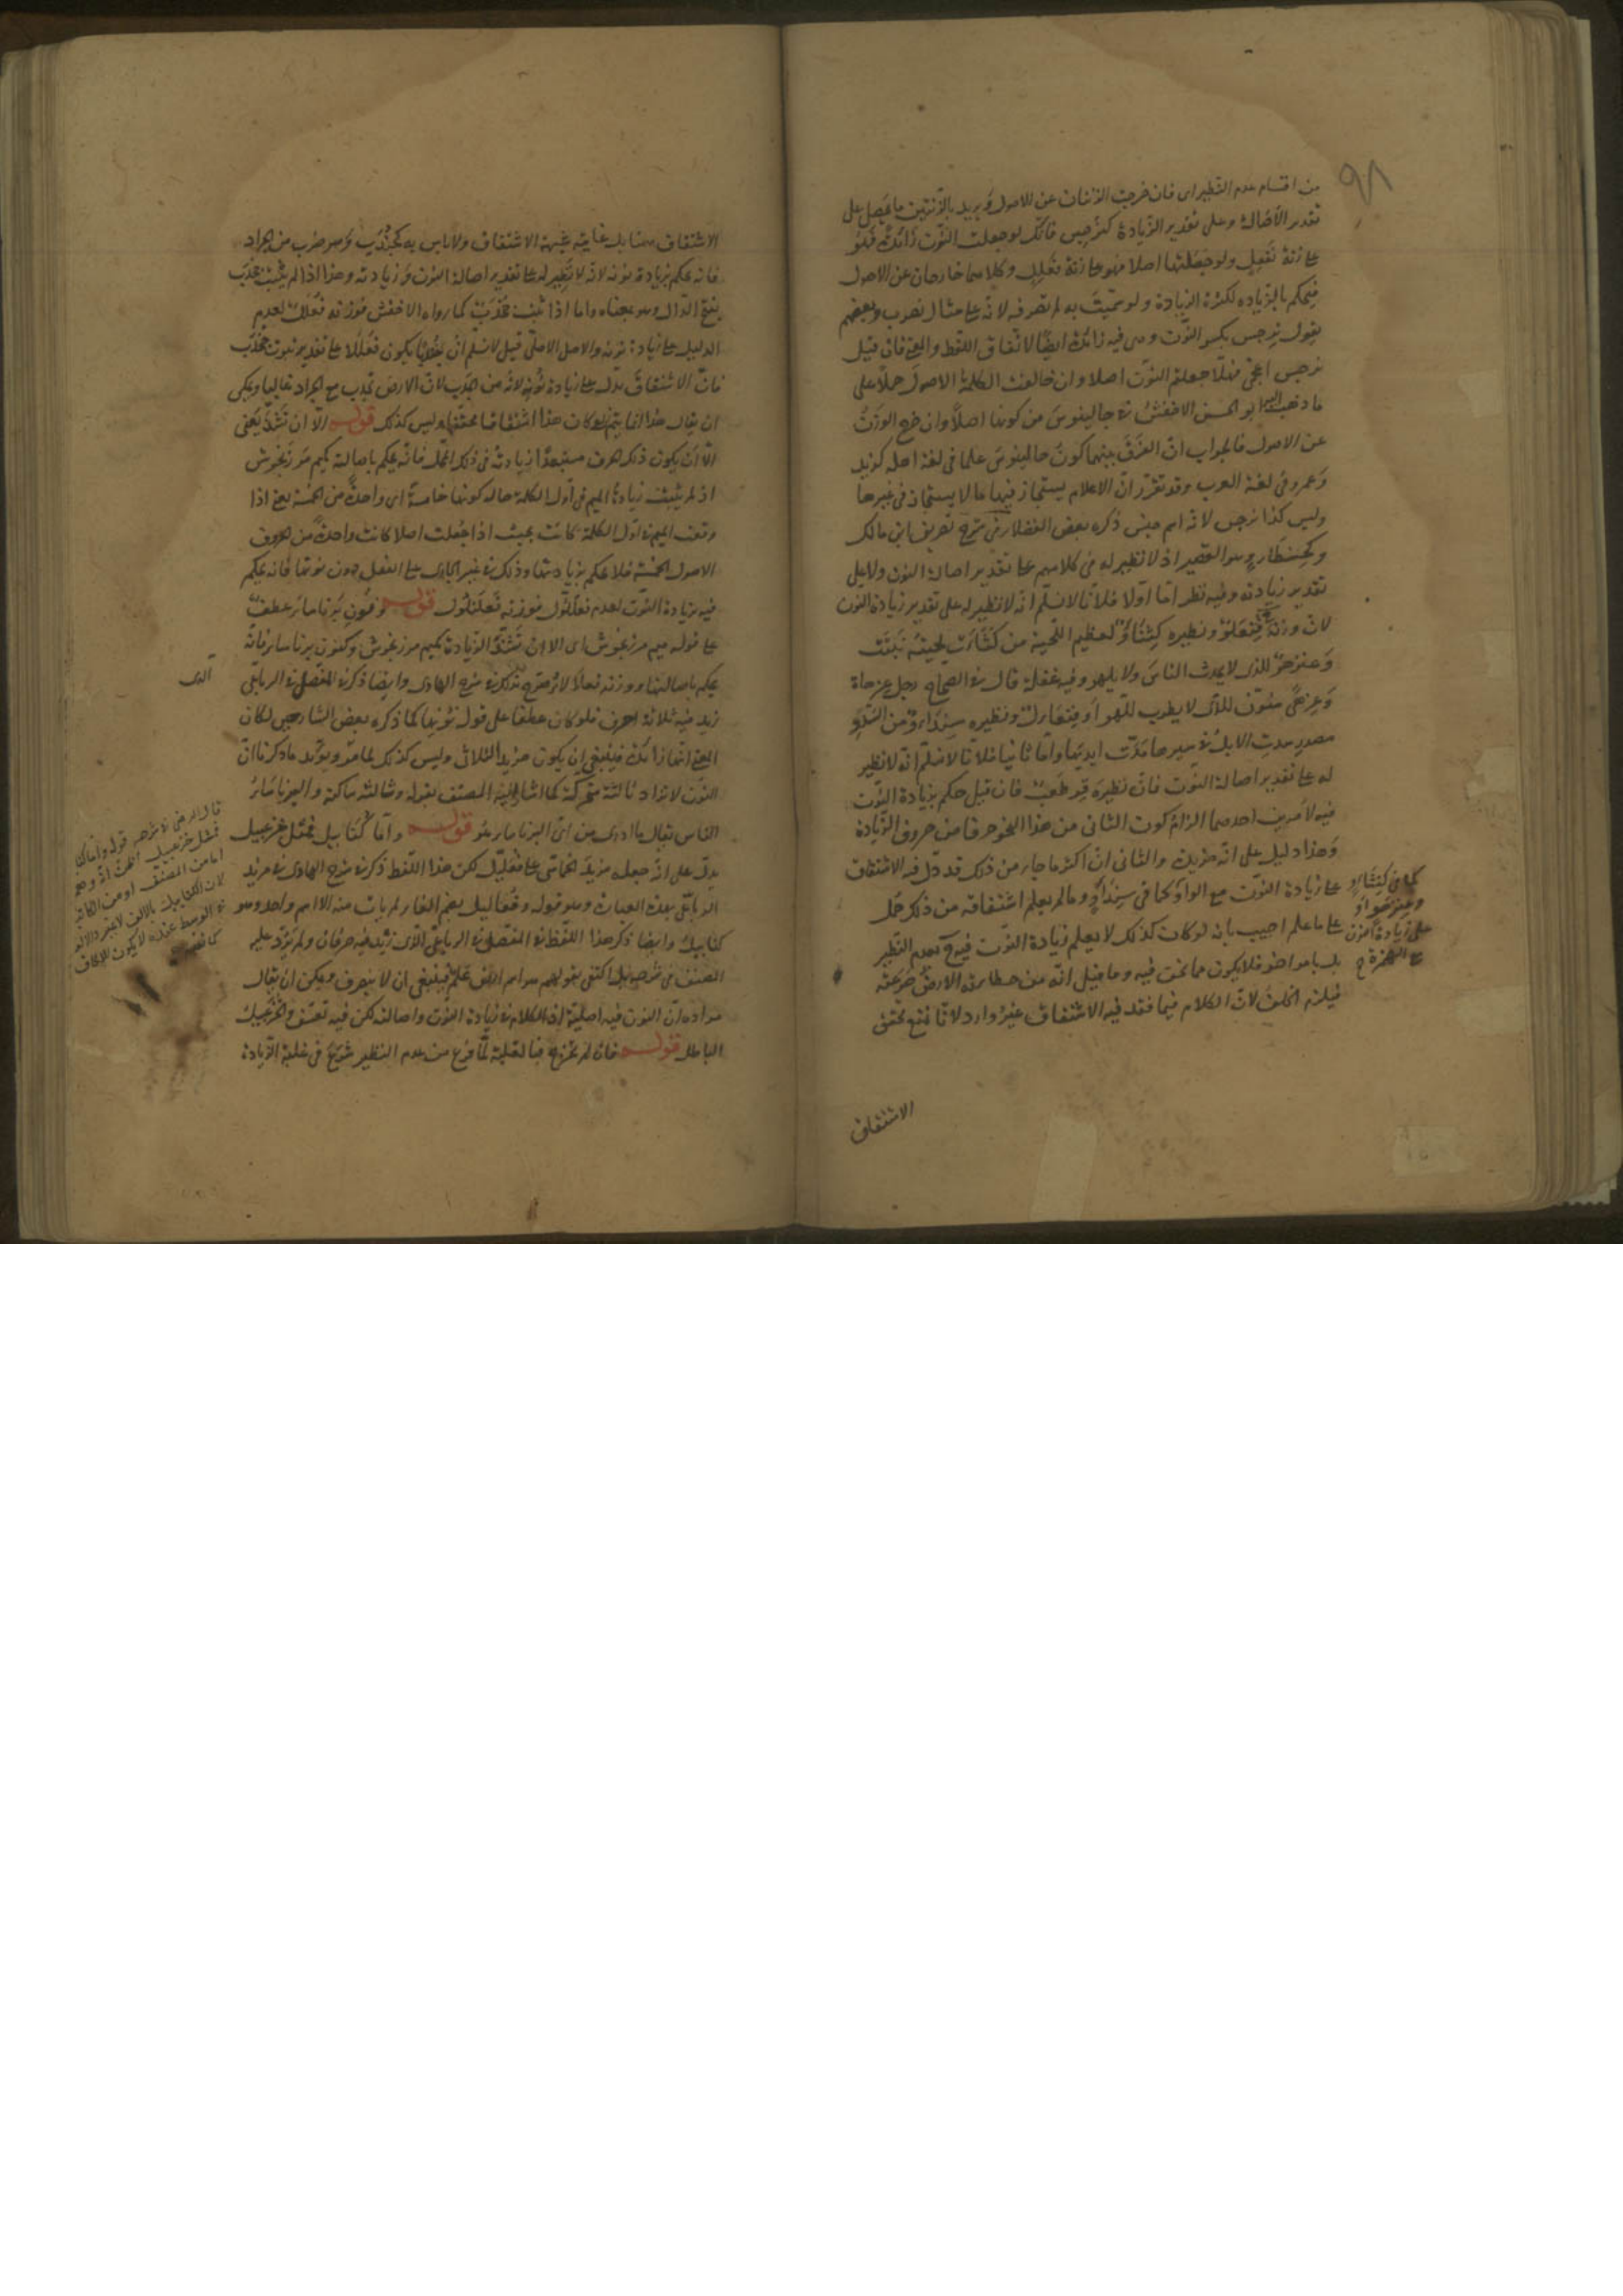 ٩٨
من اقسام عدم النظير اى فان خرجت الزنتان عن الاصول ويريد بالزنتين ما يحصل على
تقدير الأصالة وعلى تقدير الزيادة كنرجس فانك لو جعلت النون زائدة فهو
على زنة نفعل ولو جعلتها اصلا فهو على زنة فعلل وكلاهما خارجان عن الاصول
فيحكم بالزيادة لكثرة الزيادة ولو سميت به لم تصرفه لانه على مثال نضرب وبعضهم
يقول نرجس بكسر النون وهى فيه زائدة ايضا لاتفاق اللفظ والمعنى فان قيل
نرجس اعجمى فهلا جعلتم النون اصلا وان خالفت الكلمة الاصول حملا على
ما ذهب اليه ابو الحسن الاخفش فى جالينوس من كونها اصلا وان خرج الوزن
عن الاصول فالجواب ان الفرق بينهما كون جالينوس علما فى لغة اهله كزيد
وعمرو فى لغة العرب وقد تقرر ان الاعلام يستجاز فيها ما لا يستجاز فى غيرها
وليس كذا نرجس لانه اسم جنس ذكره بعض الفضلاء فى شرح تصريف ابن مالك
وكحنطأو وهو القصير اذ لا نظير له فى كلامهم على تقدير اصالة النون ولا على
تقدير زيادته وفيه نظر اما اولا فلانا لا نسلم انه لا نظير له على تقدير زيادة النون
لان وزنه فنعلو ونظيره كنثأو لعظيم اللحية من كثأت لحيته نبتت
وعنزهو للذى لا يحدث الناس ولا يلهو وفيه غفلة قال فى الصحاح رجل عزهاة
وعزهى منون للذى لا يطرب للهو او ونظيره سندأو من السدو
مصدر سدت الابل فى سيرها مدت ايديها واما ثانيا فلانا لا نسلم انه لا نظير
له على تقدير اصالة النون فان نظيره قرطعب فان قيل حكم بزيادة النون
فيه لامرين احدهما الزام كون الثانى من هذا النحو حرفا من حروف الزيادة
وهذا دليل على انه مزيد والثانى ان اكثر ما جاء من ذلك قد دل فيه الاشتقاق
على زيادة النون مع الواو كما فى سندأو وما لم يعلم اشتقاقه من ذلك حمل
على ما علم اجيب بانه لو كان كذلك لا يعلم زيادة النون فيه بعدم النظير
بل بامر اخر فلا يكون مما نحن فيه وما قيل انه من حطا به الارض صرعه
فيلزم الخلف لان الكلام فيما فقد فيه الاشتقاق غير وارد لانا نمنع تحقق
كما فى كنثأو
وعنزهو او
على زيادة النون
مع الهمزة
الاشتقاق
الاشتقاق هنا بل غايته شبهة الاشتقاق ولا باس به كجندب وهو ضرب من الجراد
فانه يحكم بزيادة نونه لانه لا نظير له على تقدير اصالة النون وزيادته وهذا اذا لم يثبت جخدب
بفتح الدال وهو بمعناه واما اذا ثبت جخدب كما رواه الاخفش فوزنه فعلل لعدم
الدليل على زيادة نونه والاصل الاصلى قيل لا نسلم ان جندبا يكون فعللا على تقدير ثبوت جخدب
فان الاشتقاق يدل على زيادة نونه لانه من الجدب لان الارض تجدب مع الجراد غالبا ويمكن
ان يقال هذا انما يتم لو كان هذا اشتقاقا محققا وليس كذلك قوله الا ان تشذ يعنى
الا ان يكون ذلك الحرف مستبعدا زيادته فى ذلك المحل فانه يحكم باصالته كميم مرزنجوش
اذ لم يثبت زيادة الميم فى اول الكلمة حال كونها خامسة اى واحدة من الخمسة يعنى اذا
وقعت الميم فى اول الكلمة كانت بحيث اذا جعلت اصلا كانت واحدة من الحروف
الاصول الخمسة فلا يحكم بزيادتها وذلك فى غير الجارى على الفعل دون نونها فانه يحكم
فيه بزيادة النون لعدم فعللول فوزنه فعلنلول قوله ونون برناساء عطف
على قوله ميم مرزنجوش اى الا ان تشذ الزيادة كميم مرزنجوش وكنون برناساء فانه
يحكم باصالتها ووزنه فعلالاء صرح بذلك فى شرح الهادى وايضا ذكر فى المفصل فى الرباعى
زيد فيه ثلاثة احرف فلو كان عطفا على قوله نونها كما ذكره بعض الشارحين لكان
المعنى انها زائدة فينبغى ان يكون مزيد الثلاثى وليس كذلك لما مر ويؤيد ما ذكرنا ان
النون لا تزاد ثالثة متحركة كما اشار اليه المصنف بقوله وثالثة ساكنة والبرناساء
الناس يقال ما ادرى من اى البرناساء هو قوله واما كنابيل فمثل خزعبيل
يدل على انه جعله مزيد الخماسى على فعلليل لكن هذا اللفظ ذكر فى شرح الهادى فى مزيد
الرباعى بهذه العبارة وهو قوله وفعاليل بضم الفاء لم يات منه الا اسم واحد وهو
كنابيل وايضا ذكر هذا اللفظ فى المفصل فى الرباعى الذى زيد فيه حرفان ولم يرد عليه
المصنف فى شرحه بل اكتفى بقوله هو اسم ارض علم فينبغى ان لا ينصرف ويمكن ان يقال
مراده ان النون فيه اصلية اذ الكلام فى زيادة النون واصالته لكن فيه تعسف والخزعبيل
الباطل قوله فان لم تخرج فبالغلبة لما فرغ من عدم النظير شرع فى غلبة الزيادة
الذى
قال الرضى فى شرحه قوله واما كنابيل
فمثل خزعبيل
اما من المصنف او من الكاتب
لان كنابيل بالالف لا